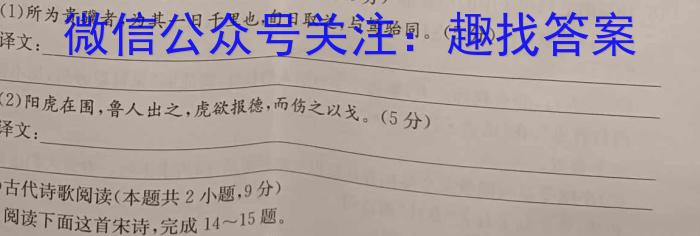 (1)所为贵骥者,为其一日千里也,旬日取之,与驽骀同。(5分)
微信公众号关注：趣找答案
译文：
(2)阳虎在围,鲁人出之,虎欲报德,而伤之以戈。(5分)
译文：
古代诗歌阅读(本题共2小题,9分)
阅读下面这首宋诗,完成14～15题。